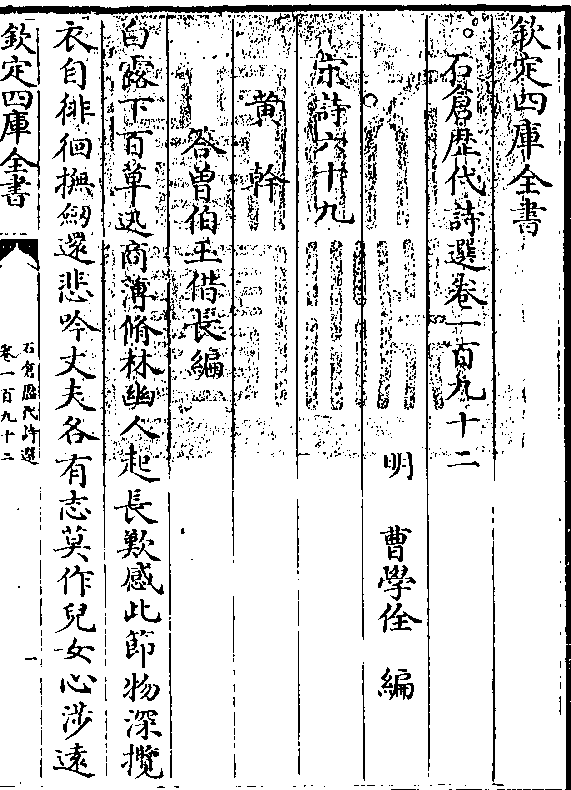 欽定四庫全書
石倉歷代詩選卷一百九十二
明 曹學佺 編
宋詩六十九
黃幹
答曾伯玉借長編
白露下百草迅商薄脩林幽人起長歎感此節物深攬
衣自徘徊撫劒還悲吟丈夫各有志莫作兒女心涉遠
欽定四庫全書
石倉歷代詩選
卷一百九十二
一